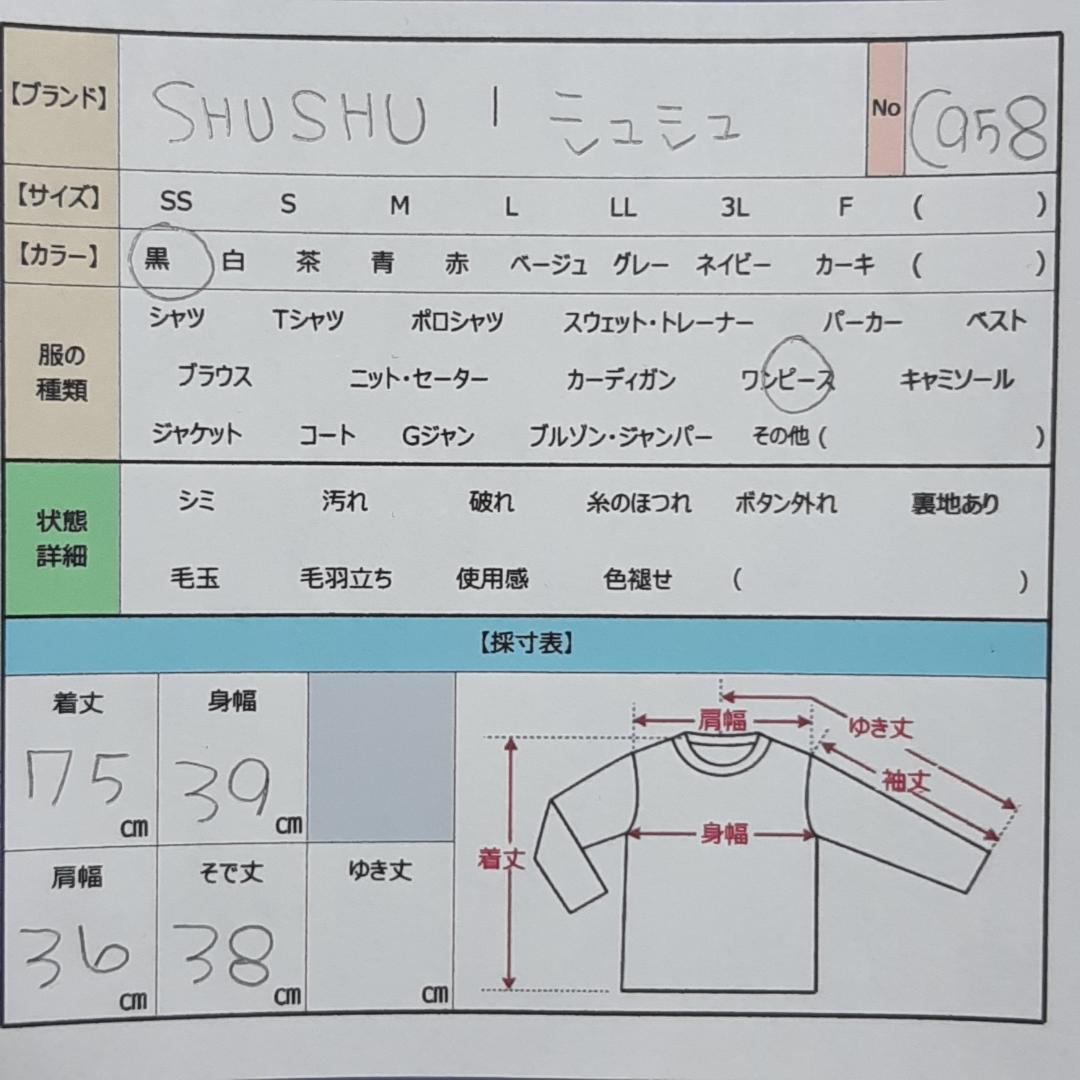 【ブランド】 SHUSHU | シュシュ No C958
【サイズ】 SS S M L LL 3L F ( )
【カラー】 黒 白 茶 青 赤 ベージュ グレー ネイビー カーキ ( )
服の
種類
シャツ Tシャツ ポロシャツ スウェット・トレーナー パーカー ベスト
ブラウス ニット・セーター カーディガン ワンピース キャミソール
ジャケット コート Gジャン ブルゾン・ジャンパー その他 ( )
状態
詳細
シミ 汚れ 破れ 糸のほつれ ボタン外れ 裏地あり
毛玉 毛羽立ち 使用感 色褪せ ( )
【採寸表】
着丈 身幅
75 cm 39 cm
肩幅 そで丈 ゆき丈
36 cm 38 cm cm
肩幅 ゆき丈
袖丈
身幅
着丈